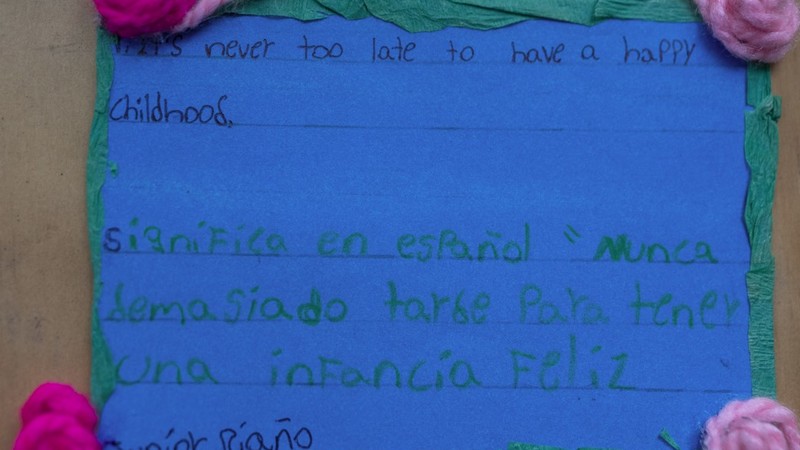 It's never too late to have a happy
childhood.
significa en español "Nunca
demasiado tarde para tener
una infancia Feliz
Junior Riaño